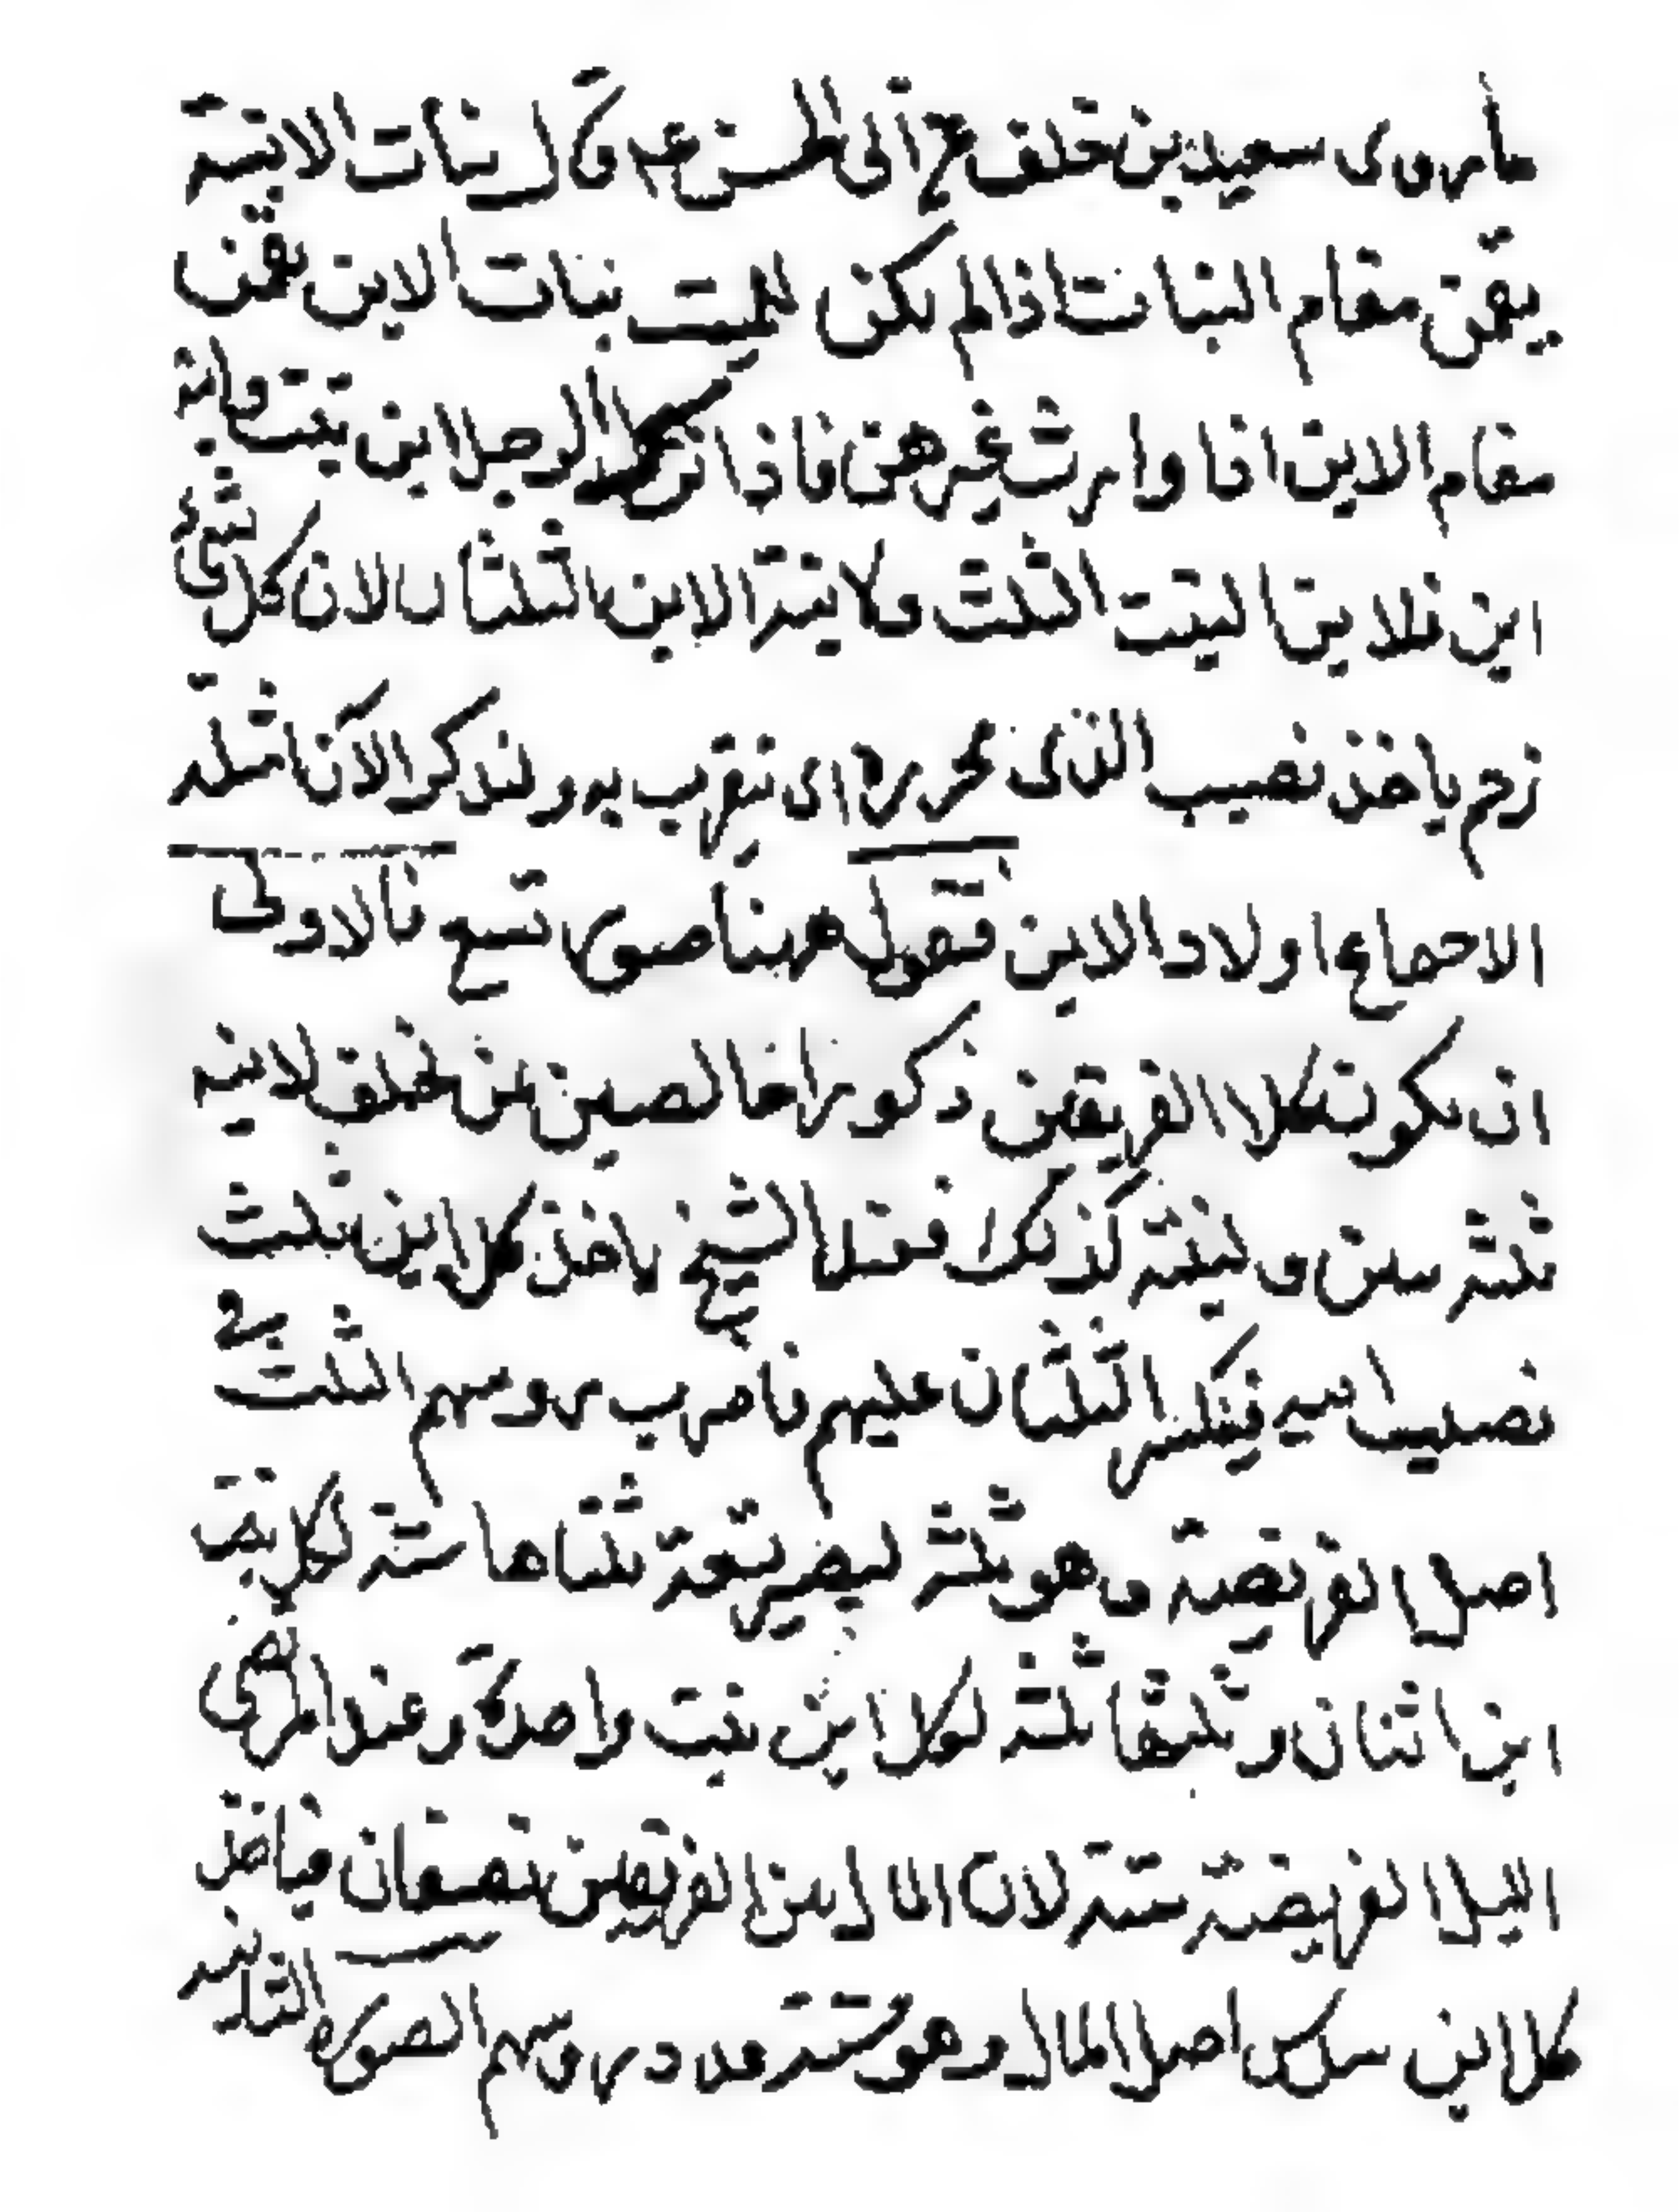 ما روى سعيد بن خلف عن ابى الحسن عم قال بنات الابنة
يقمن مقام البنات اذا لم يكن للميت بنات الابن يقمن
مقام الابن اذا وارث غيرهن فاذا ترك الرجل ابن بنت وابنة
ابن فلابن البنت الثلث ولابنة الابن الثلثان لان كل ذى
رحم ياخذ نصيب الذى يجره اى يتقرب به ولذكر الآن مثله
الاجماع اولاد الابن فنقول ههنا صور تسع فالاولى
ان يكون كلا الفريقين ذكورا خالصين كمن تخلف لابنه
ثلثة بنين ولبنته كذلك فقبل الشيخ ياخذ كل ابن ثلث
نصيب ابيه فينكسر الثلثان عليهم فاضرب رؤسهم الثلث في
اصل الفريضة وهو ثلثة ليصير تسعة ثلثاها ستة لكل بنت
ابن اثنان وثلثها ثلثة لكل ابن بنت واحدة وعند المرتضى
اصل الفريضة ستة لان المال بين الفريقين نصفان فياخذ
كل ابن سدس اصل المال وهو ستة عدد رؤسهم الصورة الثانية